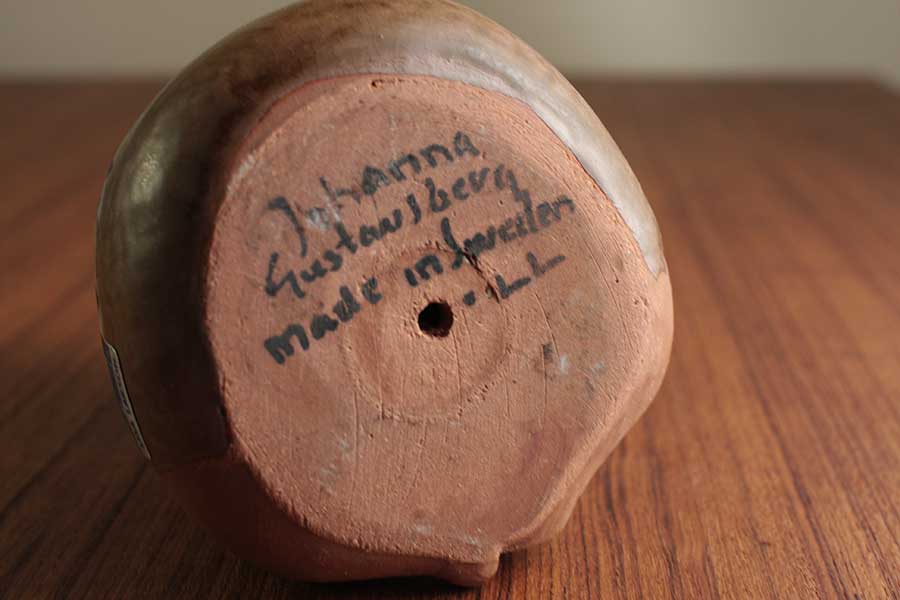 Johanna
Gustavsberg
made in Sweden
. LL